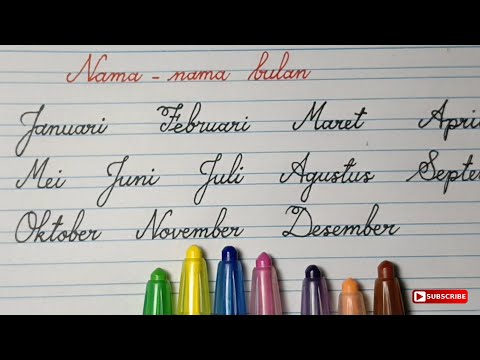 Nama - nama bulan
Januari Februari Maret Apri
Mei Juni Juli Agustus Septe
Oktober November Desember
SUBSCRIBE